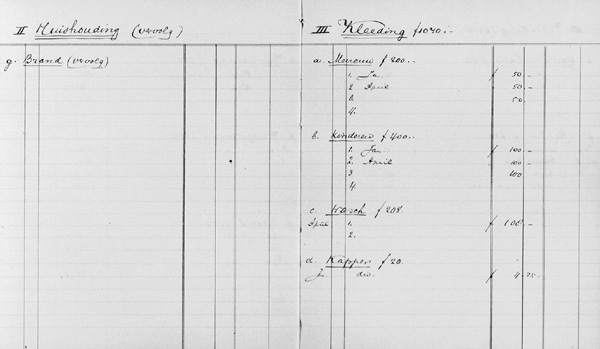 II Huishouding (vervolg)
g. Brand (vervolg)
III Kleeding f1020.-
a. Mevrouw f 200.-
1. Jan. f 50.-
2. April 50.-
3. 50.
4.
b. Kinderen f 400.-
1. Jan. f 100.-
2. April 100.-
3 100
4.
c. Wasch f 208.
1. f 108.-
2.
d. Kapper f 20.
div. f 4.25.-